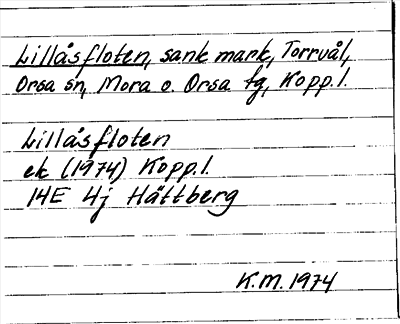 Lillåsfloten, sank mark, Torrvål,
Orsa sn, Mora o. Orsa tg, Kopp.l.
Lillåsfloten
ek (1974) Kopp.l.
14E 4j Hättberg
K.M. 1974